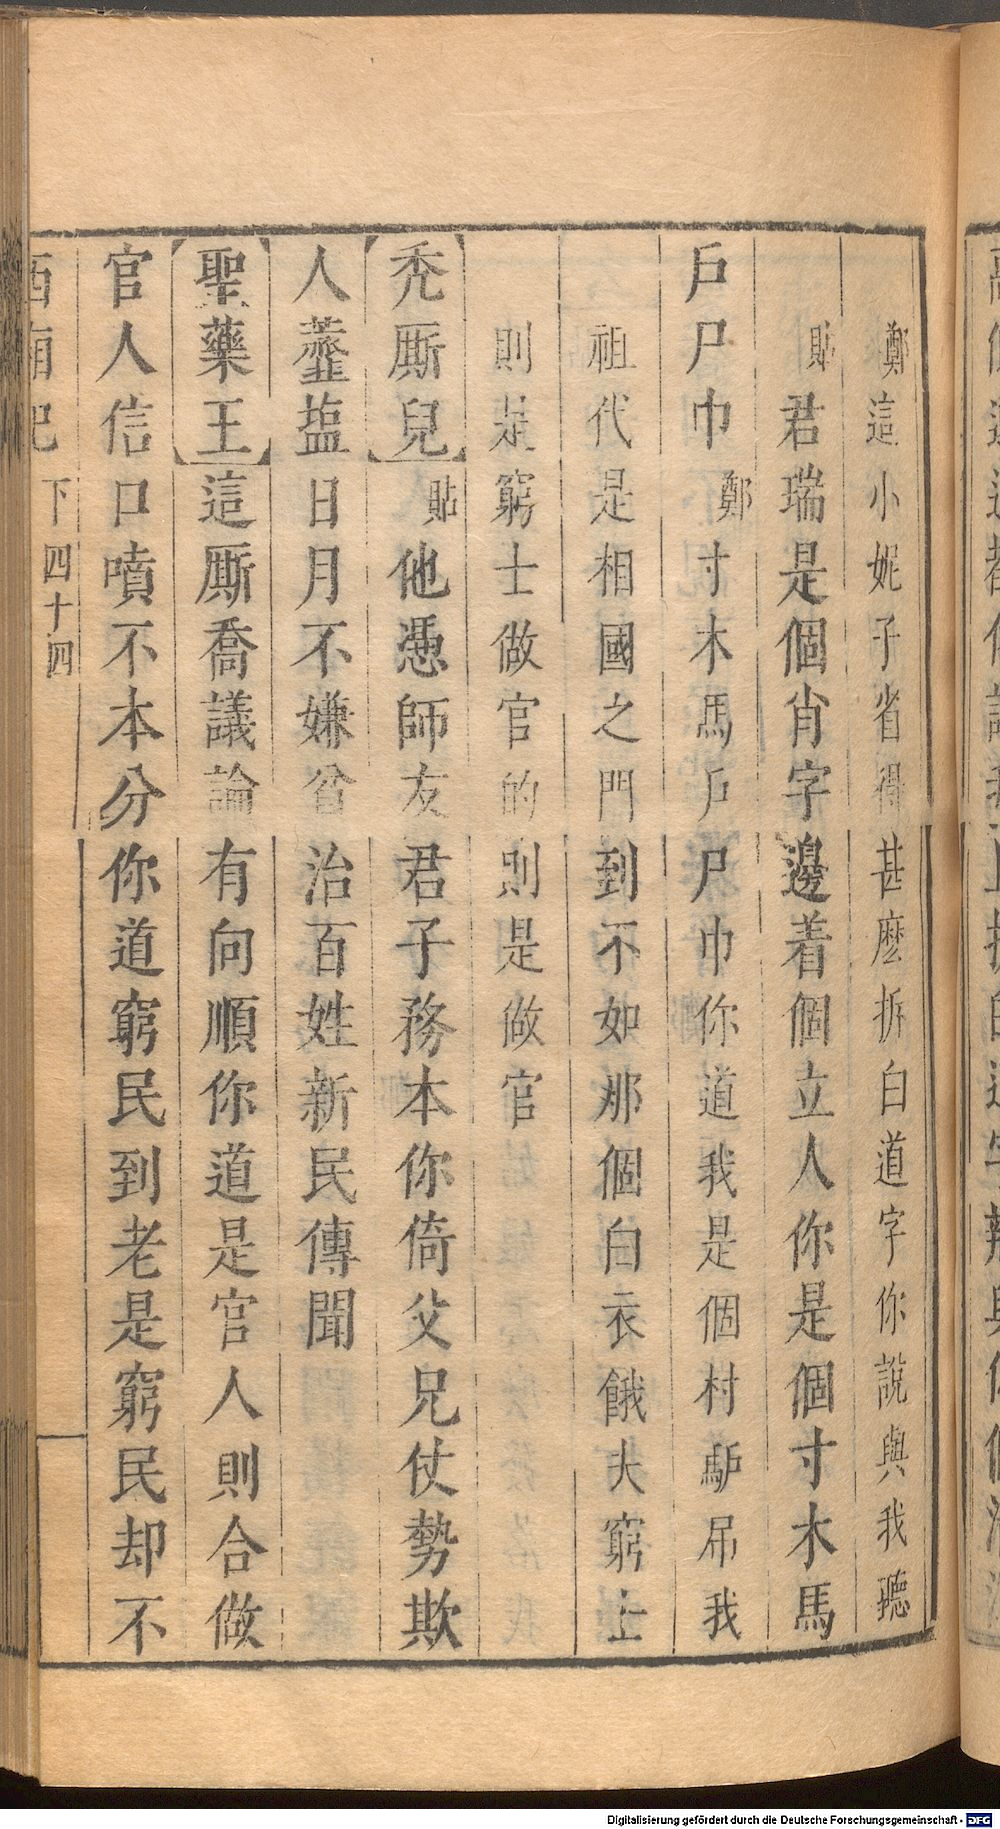 鄭這小妮子省得甚麽拆白道字你說與我聽
貼君瑞是個肖字邊着個立人你是個寸木馬
戶尸巾鄭寸木馬戶尸巾你道我是個村馿吊我
祖代是相國之門到不如那個白衣餓夫窮士
則是窮士做官的則是做官
禿厮兒貼他憑師友君子務本你倚父兄仗勢欺
人虀塩日月不嫌貧治百姓新民傳聞
聖藥王這厮喬議論有向順你道是官人則合做
官人信口噴不本分你道窮民到老是窮民却不
西廂記 下 四十四
Digitalisierung gefördert durch die Deutsche Forschungsgemeinschaft - DFG